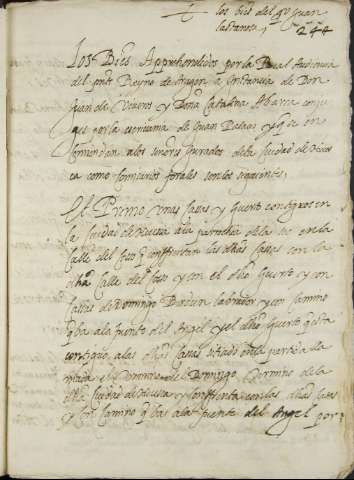 los bies del qº Juan
lastanosa, 244
Los Bies Apprehendidos por la Real Audiencia
del pnte Reyno de Aragon a Instancia de Don
Juan de Viveros y Doña Catalina Abarca conju
ges por la escrivania de Juan y q se en
comiendan a los señores Jurados dela Ciudad de Hues
ca como comisarios forales son los siguientes,
Et Primo unas casas y Guerto contiguos en
la Ciudad de Huesca a la parrochia dela seo en la
calle del Coso q confruentan las dhas casas con la
dha calle del Coso y con el dho Guerto y con
casas de Domingo labrador y con camino
q ba a la puente del Angel y el dho Guerto q esta
contiguo a las dhas casas sitiado en la partida lla
mada Domingo termino de la
dha Ciudad de Huesca y confruenta con las dhas casas
y con camino q ba a la puente del Angel por